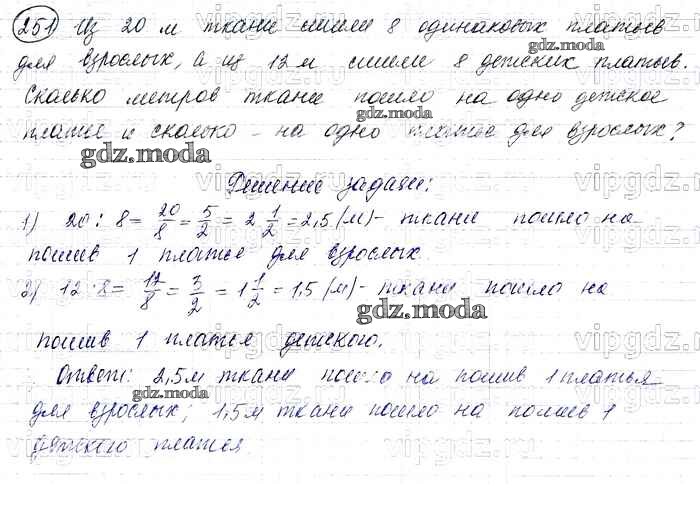 251 Из 20 м ткани сшили 8 одинаковых платьев
для взрослых, а из 12 м сшили 8 детских платьев.
Сколько метров ткани пошло на одно детское
платье и сколько - на одно платье для взрослых?
Решение задачи:
1) 20 : 8 = 20/8 = 5/2 = 2 1/2 = 2,5 (м) - ткани пошло на
пошив 1 платье для взрослых.
2) 12 : 8 = 12/8 = 3/2 = 1 1/2 = 1,5 (м) - ткани пошло на
пошив 1 платье детского.
Ответ: 2,5 м ткани пошло на пошив 1 платья
для взрослых; 1,5 м ткани пошло на пошив 1
детского платья
gdz.moda
gdz.moda
gdz.moda
gdz.moda
gdz.moda
vipgdz.ru